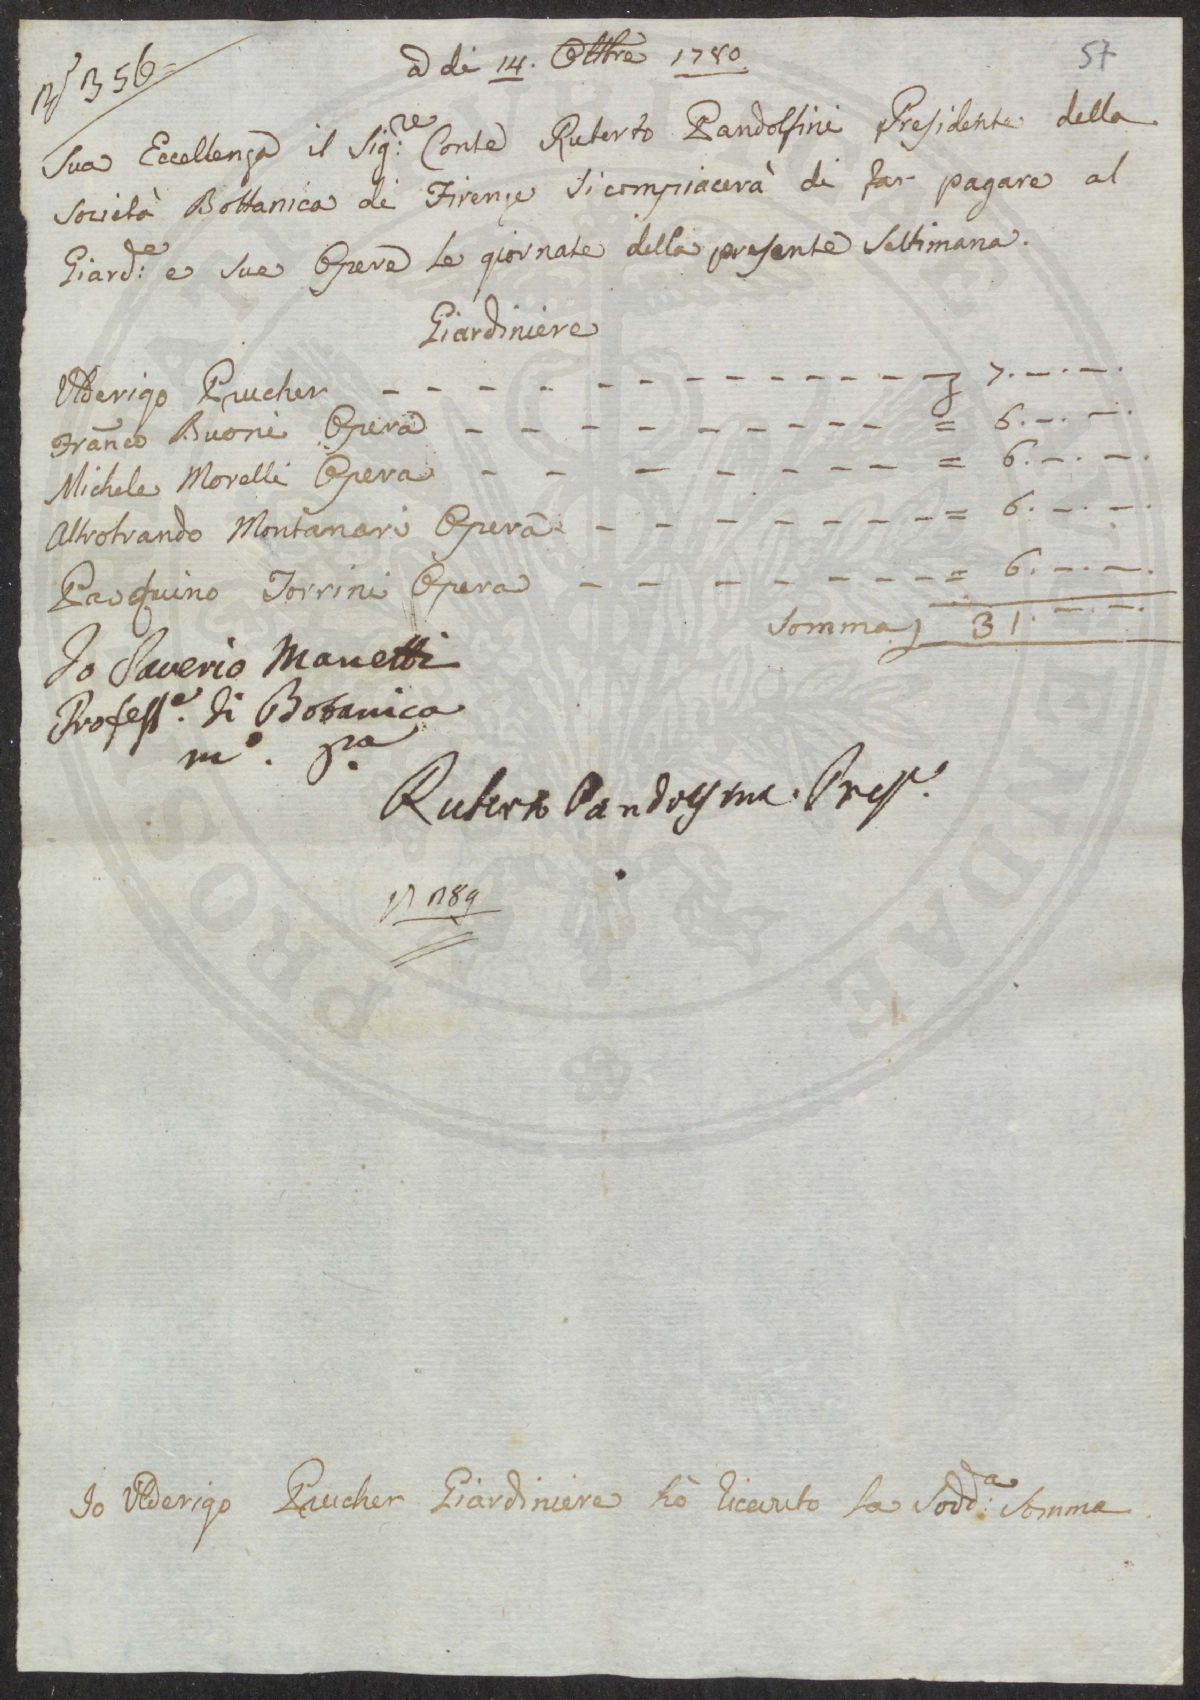 N.° 356
57
a di 14. Ottbre 1780
Sua Eccellenza il Sig:re Conte Ruberto Pandolfini Presidente della
Società Bottanica di Firenze si compiacerà di far pagare al
Giard:e e sue Opere le giornate della presente Settimana.
Giardiniere
Ulderigo Prucher - - - - - - - - - - - - - 7. - . - .
Franco Buoni Opera - - - - - - - - - = 6. - . - .
Michele Morelli Opera - - - - - - - - = 6. - . - .
Altrotrando Montanari Opera - - - - - - - - = 6. - . - .
Pasquino Torrini Opera - - - - - - - = 6. - . - .
Somma 31. - . - .
Io Saverio Manetti
Profess:e di Botanica
m:o p:a
Ruberto Pandolfini Pres:
N 189
Io Ulderigo Prucher Giardiniere hò ricevuto la Sodd:a Somma